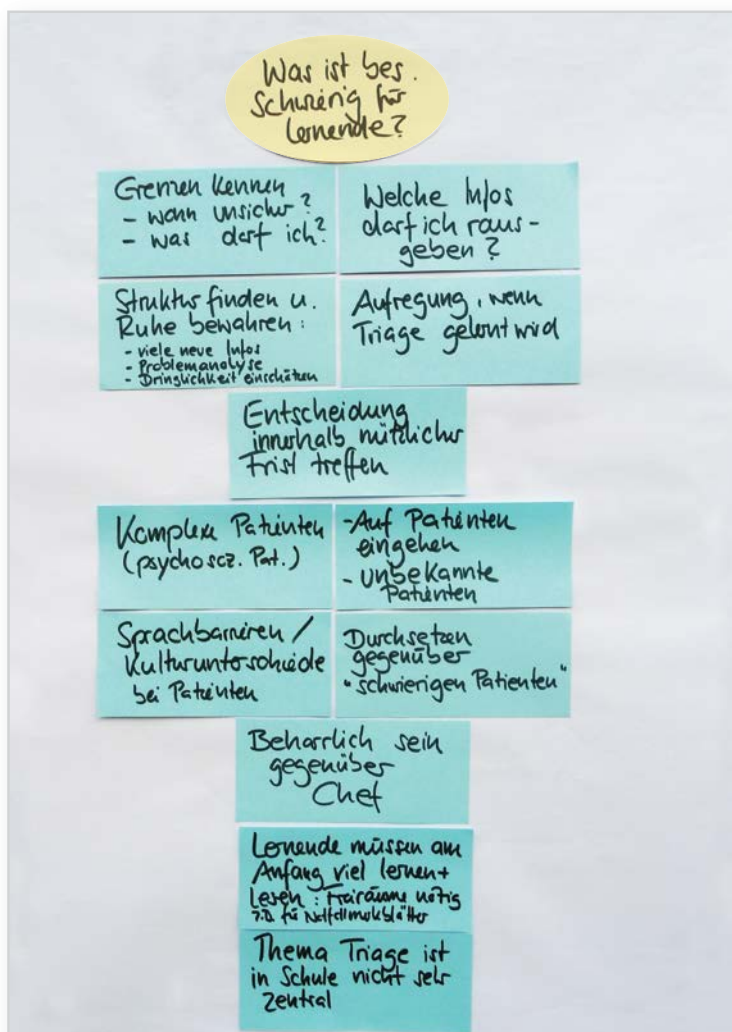 Was ist bes.
Schwierig für
Lernende?
Grenzen kennen
- wann unsicher?
- was darf ich?
Welche Infos
darf ich raus-
geben?
Struktur finden u.
Ruhe bewahren:
- viele neue Infos
- Problemanalyse
- Dringlichkeit einschätzen
Aufregung, wenn
Triage gelernt wird
Entscheidung
innerhalb nützlicher
Frist treffen
Komplexe Patienten
(psychosoz. Pat.)
- Auf Patienten
eingehen
- unbekannte
Patienten
Sprachbarrieren /
Kulturunterschiede
bei Patienten
Durchsetzen
gegenüber
"schwierigen Patienten"
Beharrlich sein
gegenüber
Chef
Lernende müssen am
Anfang viel lernen +
lesen: Freiräume nötig
z.B. für Notfallmerkblätter
Thema Triage ist
in Schule nicht sehr
zentral